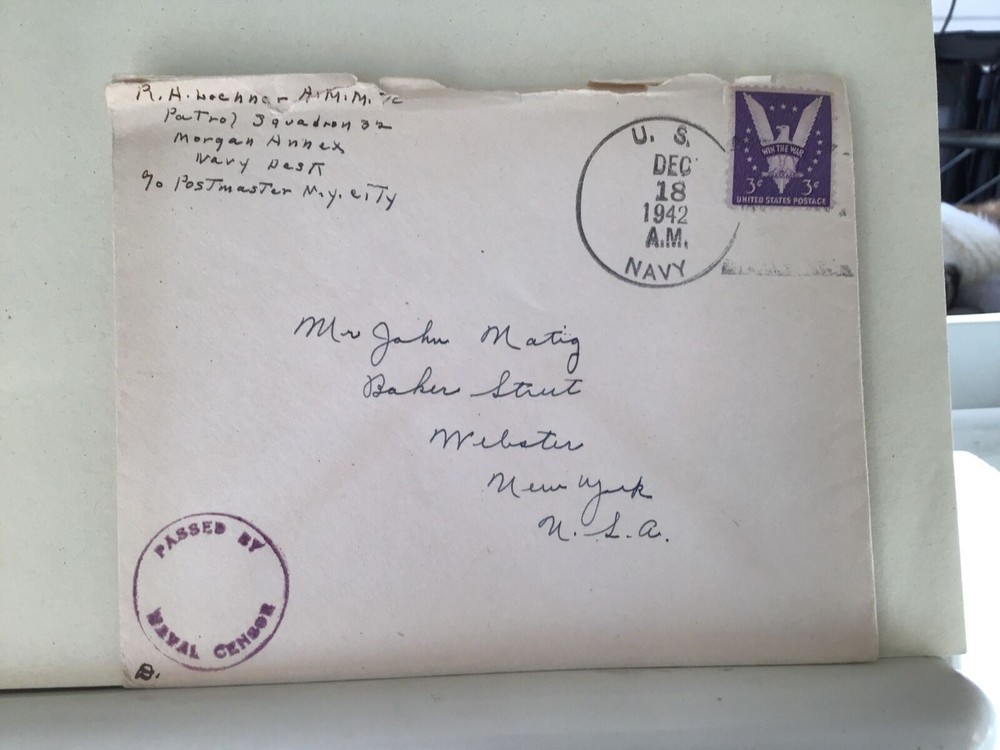 R. H. Lochner A.M.M. 2/c
Patrol Squadron 32
Morgan Annex
Navy Desk
c/o Postmaster N.Y. City
U. S.
DEC
18
1942
A.M.
NAVY
WIN THE WAR
3¢ 3¢
UNITED STATES POSTAGE
Mr John Matig
Baker Street
Webster
New York
U. S. A.
PASSED BY
NAVAL CENSOR
B.